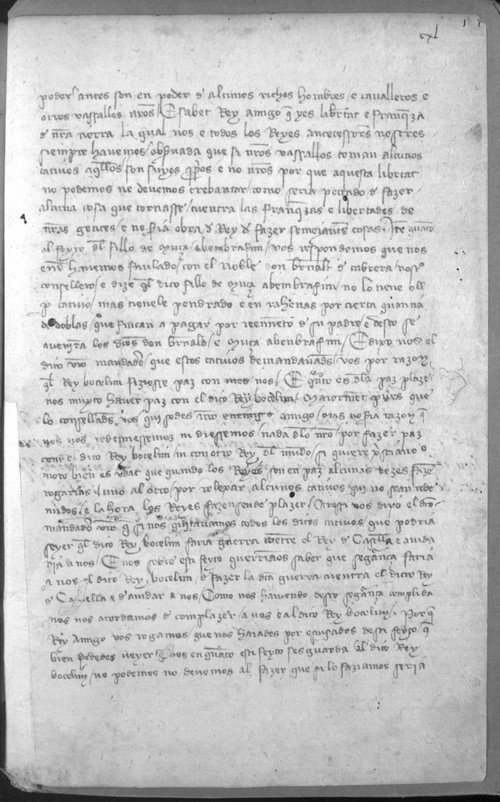 cxl
poder antes son en poder d algunos richos hombres e cavalleros e
otros vassallos nros E sabet Rey amigo q es libertat e franqueza
d nra tierra la qual nos e todos los Reyes antecessores nostres
siempre havemos observada que si nros vassallos toman algunos
cativos aqllos son suyos propios e no nros por que aquesta libertat
no podemos ne devemos crebantar como seria peccado d fazer
alguna cosa que tornasse cuentra las franquezas e libertades de
nras gentes e no sia obra d Rey d fazer semeiantes cosas Ite quanto
al feyto dl fillo de muça abembrafim vos respondemos que nos
end havemos fauladao con el noble don bernalt d cabrera nostro
consellero e dize ql dito fillo de muça abembrafim no lo tiene ell
p cativo mas tienele pendrado e en rahenas por cierta quantia
d doblas que fincan a pagar por reemço d su padre e desto se
avenira los ditos don bernaldo e muça abenbrafim E dito nos el
dito vro mandadero que estos cativos demandavades vos por razon
ql Rey bocelim faziesse paz con nos E quanto es dla paz plaze
nos muyto haver paz con el dito Rey bocelim maiorment pues que
lo consellades vos qui sodes nro amigo mas no sia razon q
nos nos redepnessemos ni diessemos nada dlo nro por fazer paz
con el dito Rey bocelim ni con otro Rey dl mundo si quiere xpistiano o
moro bien es verdat que quando los Reyes son en paz algunas vezes fazen
rogarias luno al otro por relexar algunos cativos qui no sean rede
midos e la hora los Reyes fazense de plazer Otrossi nos dixo el dito
mandadero vro q si nos quitavamos todos los ditos cativos que podria
seyer ql dito Rey bocelim faria guerra contre el Rey d Castiella e aiuda
ria a nos E nos sobre esti feyto querriamos saber que segurança faria
a nos el dito Rey bocelim d fazer la dita guerra cuentra el dito Rey
d Castiella e d aiudar a nos Como nos haviendo desto segurança complida
nos nos acordamos d complazer a vos e al dito Rey bocelim Porq
Rey amigo vos rogamos que nos hayades por escusados desti feyto q
bien podedes veyer q nos en quanto esti feyto se sguarda al dito Rey
bocelim no podemos no devemos al fazer que si lo faziamos seria